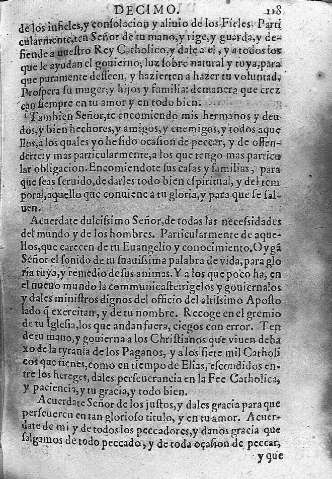 DECIMO. 118
de los infieles, y consolacion y aliuio de los Fieles. Parti
cularmente, ten Señor de tu mano, y rige, y guarda, y de-
fiende a nuestro Rey Catholico, y dale a el, y a todos los
que le ayudan el gouierno, luz sobre natural y tuya, para
que puramente desseen, y hazierten a hazer tu voluntad.
Prospera su muger, y hijos y familia: de manera que crez
can siempre en tu amor y en todo bien.
Tambien Señor, te encomiendo mis hermanos y deu
dos, y bien hechores, y amigos, y enemigos, y todos aque
llos, a los quales yo he sido ocasion de peccar, y de offen-
derte: y mas particularmente, a los que tengo mas particu
lar obligacion. Encomiendote sus casas y familias, para
que seas seruido, de darles todo bien espiritual, y del tem
poral, aquello que conuiene a tu gloria, y para que se sal-
uen.
Acuerdate dulcissimo Señor, de todas las necesidades
del mundo y de los hombres. Particularmente de aque-
llos, que carecen de tu Euangelio y conocimiento, Oygã
Señor el sonido de tu suauissima palabra de vida, para glo
ria tuya, y remedio de sus animas. Y a los que poco ha, en
el nueuo mundo la communicaste: rigelos y gouiernalos
y dales ministros dignos del officio del altissimo Aposto
lado q̃ exercitan, y de tu nombre. Recoge en el gremio
de tu Iglesia, los que andan fuera, ciegos con error. Ten
de tu mano, y gouierna a los Christianos que viuen deba
xo de la tyrania de los Paganos, y a los siete mil Catholi
cos que tienes, como en tiempo de Elias, escondidos en-
tre los hereges, dales perseuerancia en la Fee Catholica,
y paciencia, y tu gracia, y todo bien.
Acuerdate Señor de los justos, y dales gracia para que
perseueren en tan glorioso titulo, y en tu amor. Acuer-
date de mi y de todos los peccadores, y danos gracia que
salgamos de todo peccado, y de toda ocasion de peccar,
y que